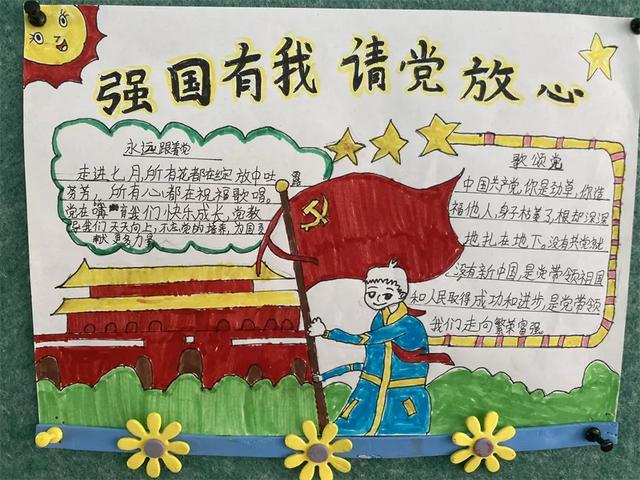 强国有我 请党放心
永远跟着党
走进七月,所有花都在绽放中吐露
芬芳,所有心都在祝福歌唱。
党在嘱咐我们快乐成长,党教
导我们天天向上,不忘党的培养,为国贡
献更多力量
歌颂党
中国共产党,你是劲草,你造
福他人,身子枯萎了,根却深深
地扎在地下。没有共党就
没有新中国,是党带领祖国
和人民取得成功和进步,是党带领
我们走向繁荣富强。